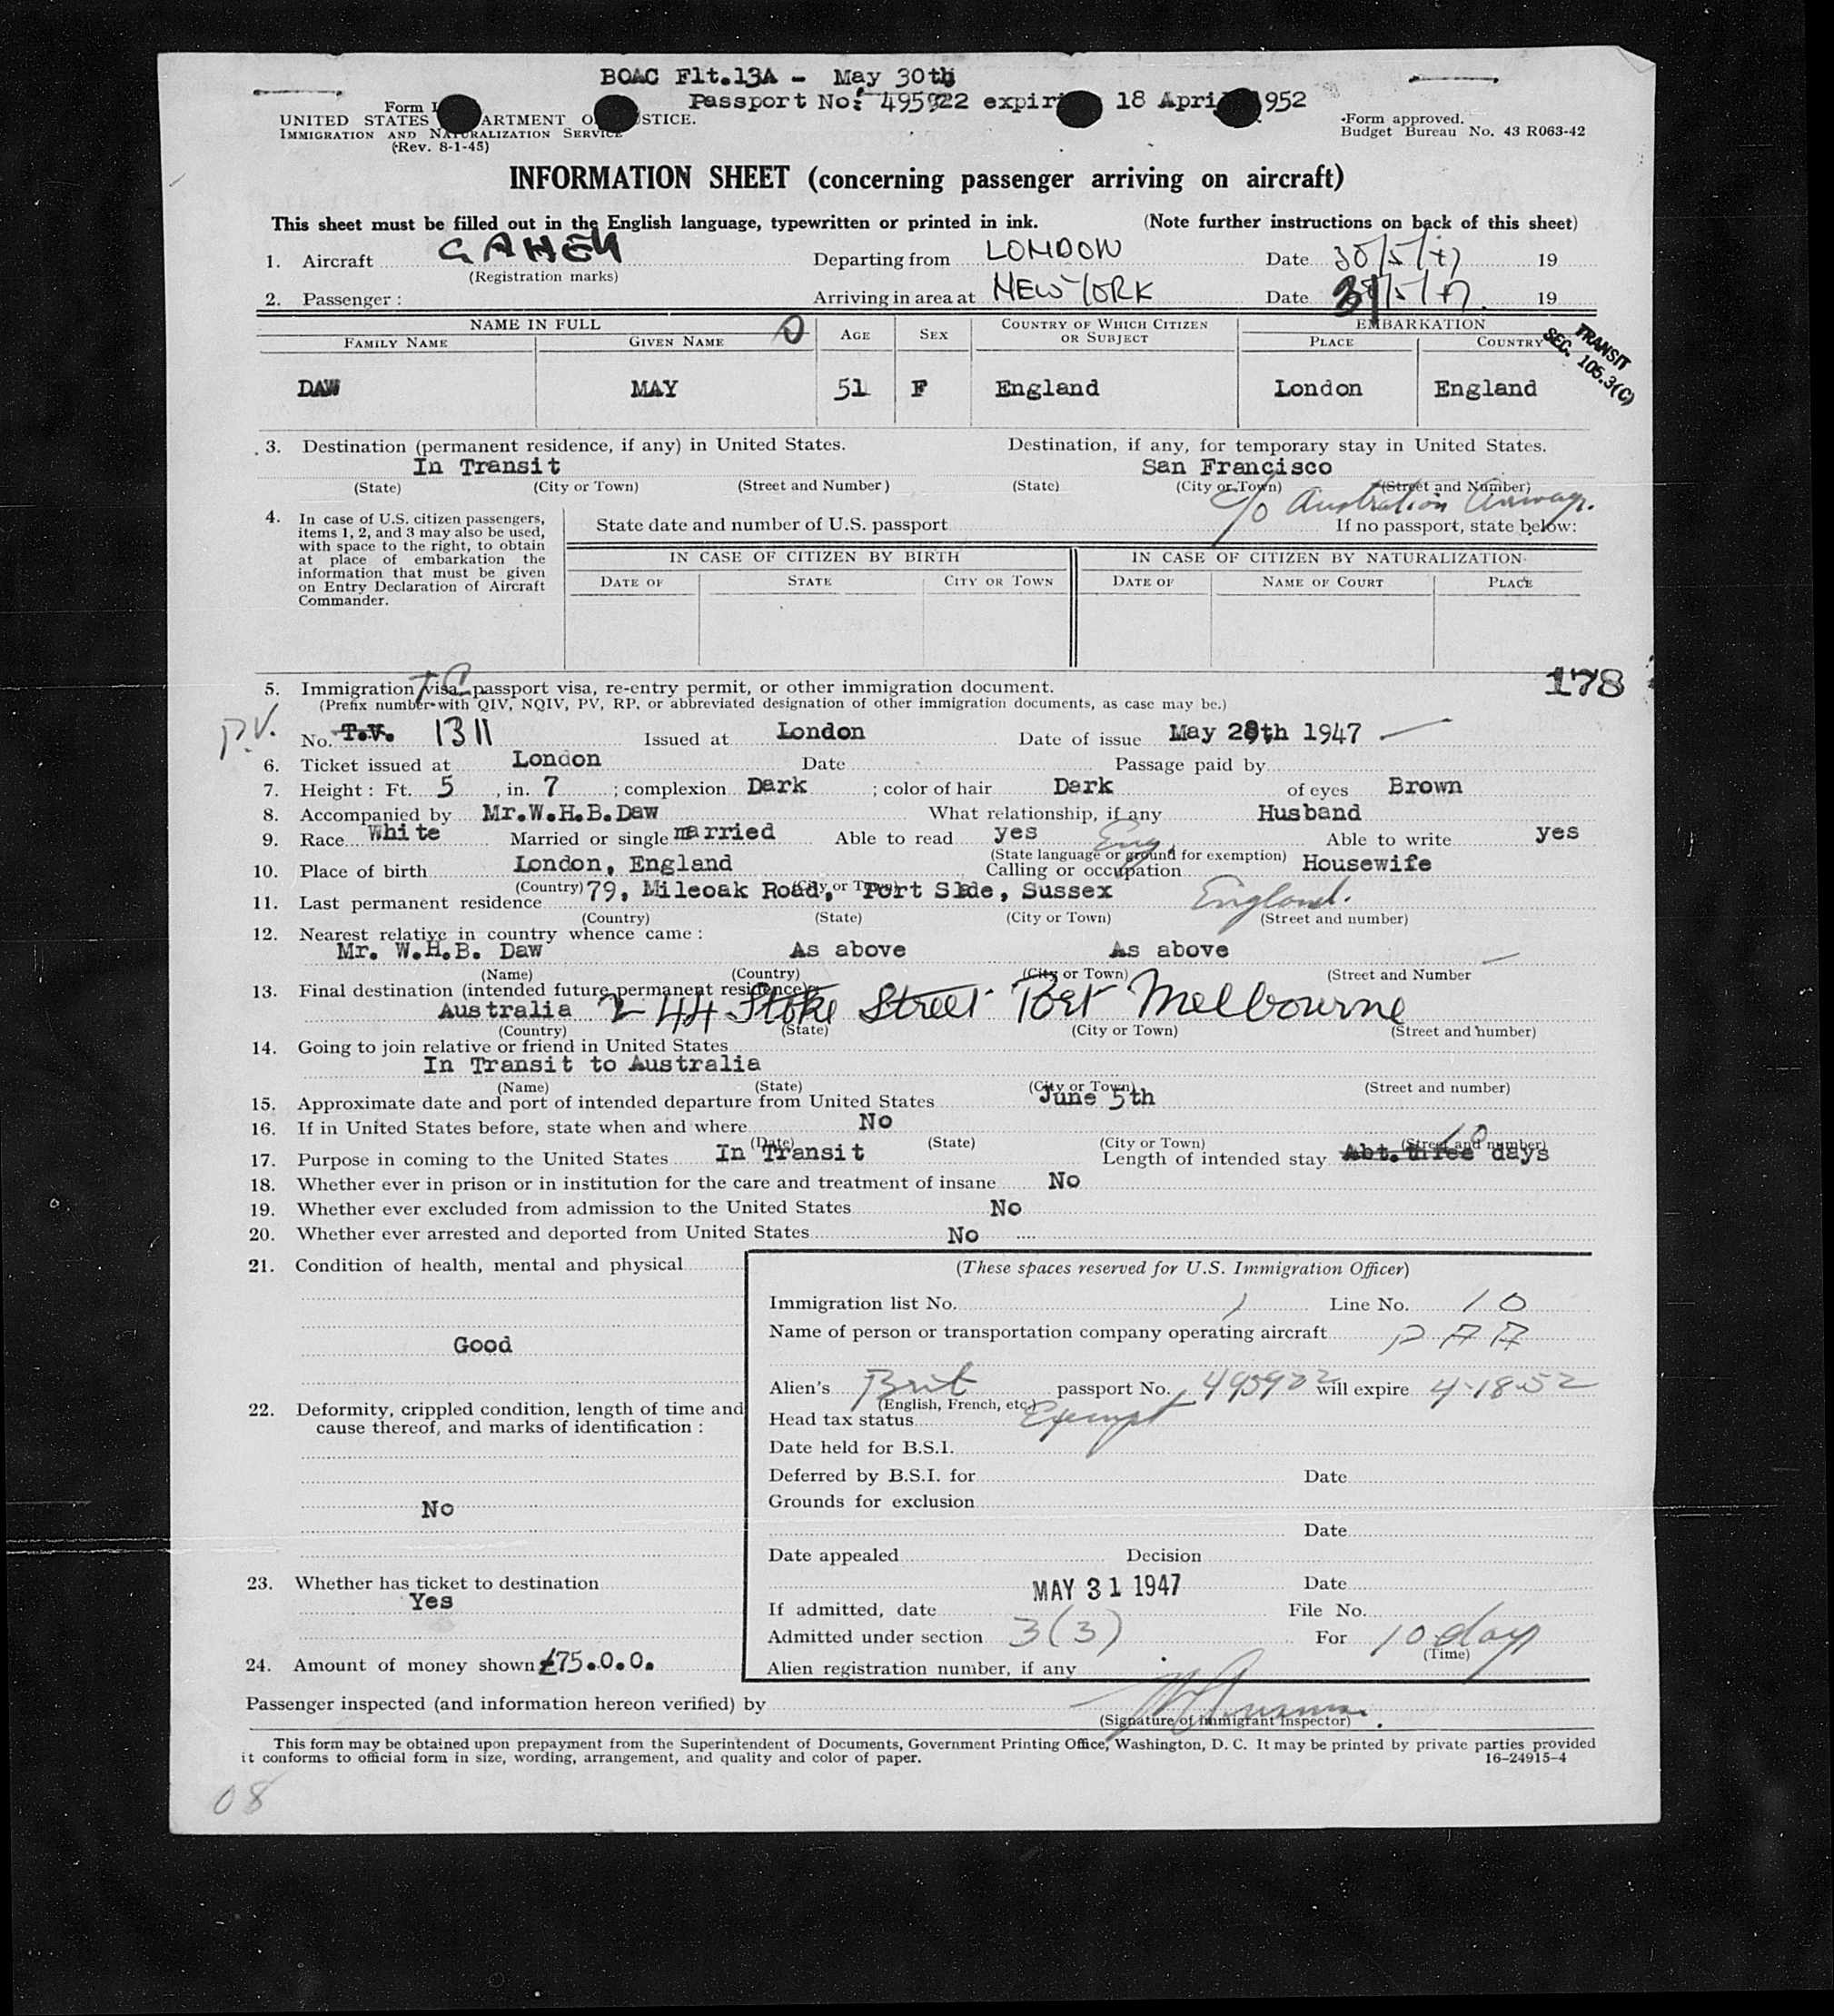 BOAC Flt.13A - May 30th
Passport No: 495922 expir 18 Apri 1952
Form I
UNITED STATES ARTMENT O STICE.
IMMIGRATION AND NATURALIZATION SERVICE
(Rev. 8-1-45)
Form approved.
Budget Bureau No. 43 R063-42
INFORMATION SHEET (concerning passenger arriving on aircraft)
This sheet must be filled out in the English language, typewritten or printed in ink. (Note further instructions on back of this sheet)
1. Aircraft GAHEN Departing from LONDON Date 30/5/47 19
(Registration marks)
2. Passenger : Arriving in area at NEW YORK Date 31/5/47 19
NAME IN FULL AGE SEX COUNTRY OF WHICH CITIZEN OR SUBJECT EMBARKATION
FAMILY NAME GIVEN NAME PLACE COUNTRY
TRANSIT
SEC. 105.3(C)
DAW MAY 51 F England London England
3. Destination (permanent residence, if any) in United States. Destination, if any, for temporary stay in United States.
In Transit San Francisco
(State) (City or Town) (Street and Number) (State) (City or Town) (Street and Number)
c/o Australian Airways.
4. In case of U.S. citizen passengers, items 1, 2, and 3 may also be used, with space to the right, to obtain at place of embarkation the information that must be given on Entry Declaration of Aircraft Commander.
State date and number of U.S. passport If no passport, state below:
IN CASE OF CITIZEN BY BIRTH IN CASE OF CITIZEN BY NATURALIZATION
DATE OF STATE CITY OR TOWN DATE OF NAME OF COURT PLACE
178
5. Immigration visa, passport visa, re-entry permit, or other immigration document.
(Prefix number with QIV, NQIV, PV, RP, or abbreviated designation of other immigration documents, as case may be.)
P.V.
No. T.V. 1311 Issued at London Date of issue May 28th 1947
6. Ticket issued at London Date Passage paid by
7. Height : Ft. 5 , in. 7 ; complexion Dark ; color of hair Dark of eyes Brown
8. Accompanied by Mr.W.H.B.Daw What relationship, if any Husband
9. Race White Married or single married Able to read yes Eng. Able to write yes
(State language or ground for exemption)
10. Place of birth London, England Calling or occupation Housewife
(Country) (City or Town)
11. Last permanent residence 79, Mileoak Road, Port Slade, Sussex England.
(Country) (State) (City or Town) (Street and number)
12. Nearest relative in country whence came :
Mr. W.H.B. Daw As above As above
(Name) (Country) (City or Town) (Street and Number
13. Final destination (intended future permanent residence)
Australia 244 Stoke Street Port Melbourne
(Country) (State) (City or Town) (Street and number)
14. Going to join relative or friend in United States
In Transit to Australia
(Name) (State) (City or Town) (Street and number)
15. Approximate date and port of intended departure from United States June 5th
16. If in United States before, state when and where No
(Date) (State) (City or Town) (Street and number)
17. Purpose in coming to the United States In Transit Length of intended stay Abt. three 10 days
18. Whether ever in prison or in institution for the care and treatment of insane No
19. Whether ever excluded from admission to the United States No
20. Whether ever arrested and deported from United States No
21. Condition of health, mental and physical
Good
22. Deformity, crippled condition, length of time and cause thereof, and marks of identification :
No
23. Whether has ticket to destination
Yes
24. Amount of money shown £75.0.0.
(These spaces reserved for U.S. Immigration Officer)
Immigration list No. 1 Line No. 10
Name of person or transportation company operating aircraft PAA
Alien's Brit passport No. 495922 will expire 4-18-52
(English, French, etc.)
Head tax status Exempt
Date held for B.S.I.
Deferred by B.S.I. for Date
Grounds for exclusion
Date
Date appealed Decision
Date
MAY 31 1947
If admitted, date File No.
Admitted under section 3(3) For 10 days
(Time)
Alien registration number, if any
Passenger inspected (and information hereon verified) by
(Signature of Immigrant Inspector)
This form may be obtained upon prepayment from the Superintendent of Documents, Government Printing Office, Washington, D. C. It may be printed by private parties provided
it conforms to official form in size, wording, arrangement, and quality and color of paper. 16-24915-4
08